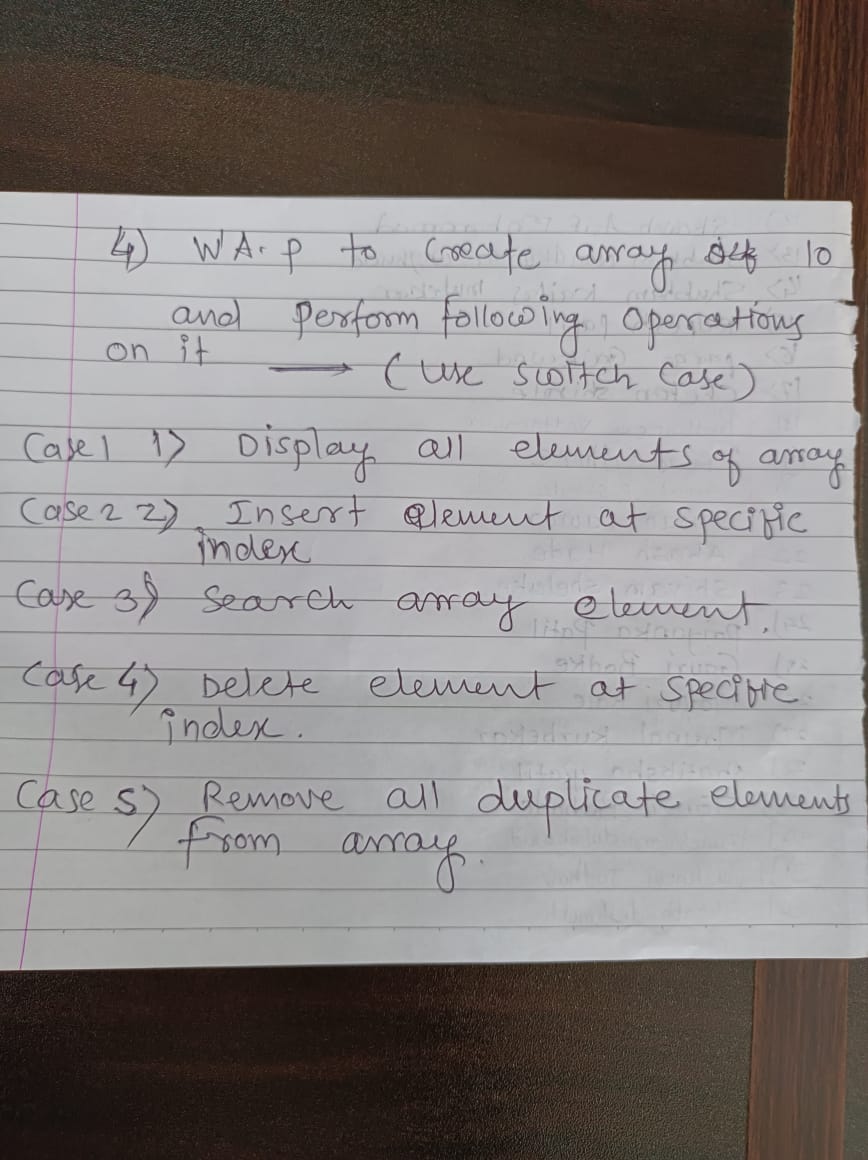 4) W A. P to Create array 10
and perform following Operations
on it → (Use switch Case)
Case 1 1) Display all elements of array
Case 2 2) Insert element at specific
index
Case 3) Search array element.
Case 4) Delete element at specific
index.
Case 5) Remove all duplicate elements
from array.